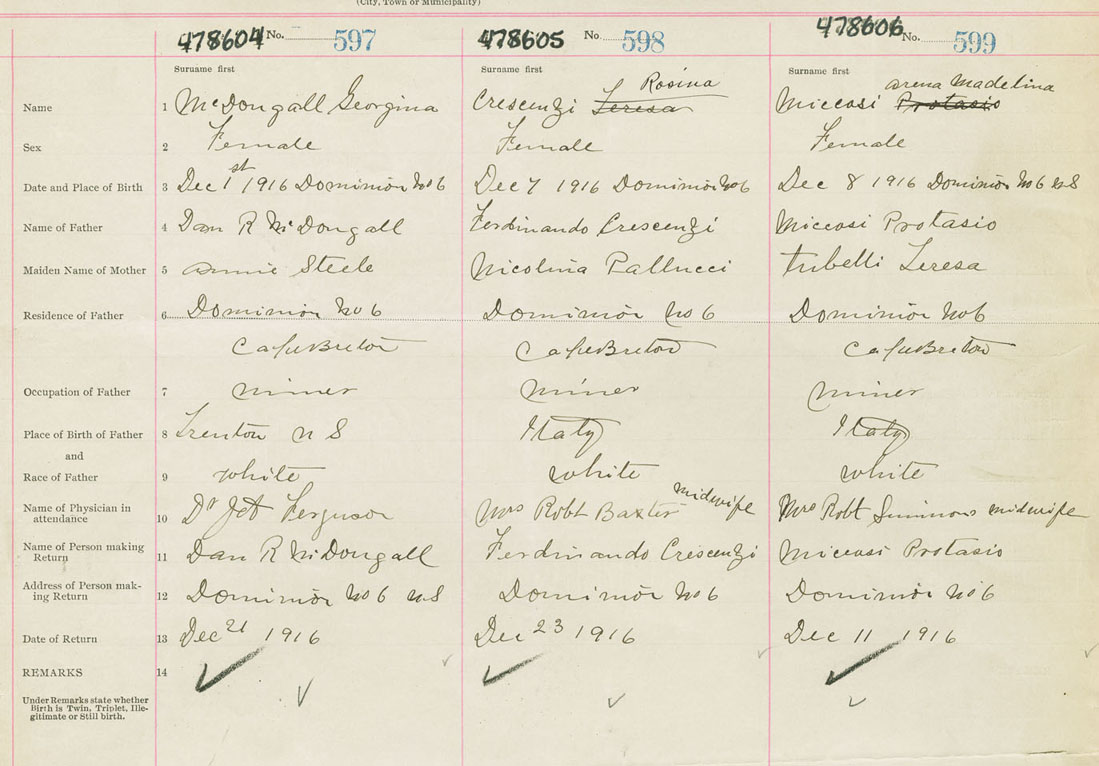 (City, Town or Municipality)
478604 No. 597 478605 No. 598 478606 No. 599
Surname first Surname first Surname first
Rosina arena Madelina
Name 1 McDougall Georgina Crescenzi Teresa Miccasi Protasio
Sex 2 Female Female Female
Date and Place of Birth 3 Dec 1st 1916 Dominion No 6 Dec 7 1916 Dominion No 6 Dec 8 1916 Dominion No 6 NS
Name of Father 4 Dan R McDougall Ferdinando Crescenzi Miccasi Protasio
Maiden Name of Mother 5 Annie Steele Nicolina Pallucci Tubelli Teresa
Residence of Father 6 Dominion No 6 Dominion No 6 Dominion No 6
Cape Breton Cape Breton Cape Breton
Occupation of Father 7 miner miner miner
Place of Birth of Father 8 Trenton N S Italy Italy
and
Race of Father 9 white white white
Name of Physician in
attendance 10 Dr Ferguson Mrs Robt Baxter midwife Mrs Robt midwife
Name of Person making
Return 11 Dan R McDougall Ferdinando Crescenzi Miccasi Protasio
Address of Person mak-
ing Return 12 Dominion No 6 NS Dominion No 6 Dominion No 6
Date of Return 13 Dec 21 1916 Dec 23 1916 Dec 11 1916
REMARKS 14
Under Remarks state whether
Birth is Twin, Triplet, Ille-
gitimate or Still birth.